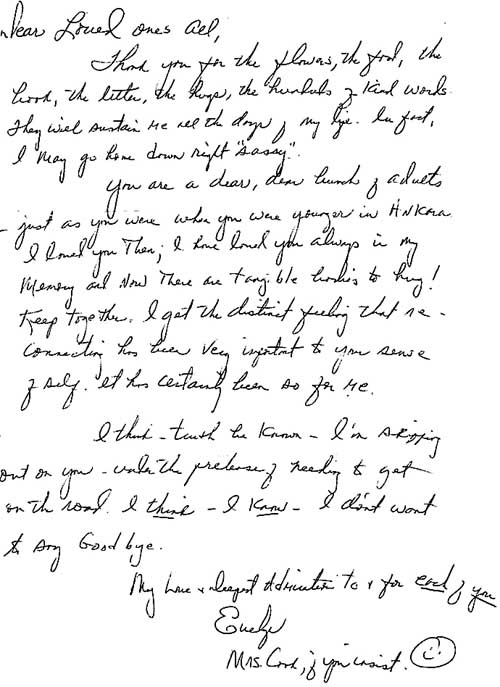 Dear Loved ones all,
Thank you for the flowers, the food, the
book, the letter, the hugs, the hundreds of kind words.
They will sustain me all the days of my life. In fact,
I may go home down right "sassy".
You are a dear, dear bunch of adults
- just as you were when you were younger in Ankara.
I loved you then; I have loved you always in my
memory and now there are tangible bodies to hug!
Keep together. I get the distinct feeling that re-
connecting has been very important to your sense
of self. It has certainly been so for me.
I think - truth be known - I'm skipping
out on you - under the pretense of needing to get
on the road. I think - I know - I don't want
to say Goodbye.
My love & deepest admiration to & for each of you
Evelyn
Mrs. Cook, if you insist.